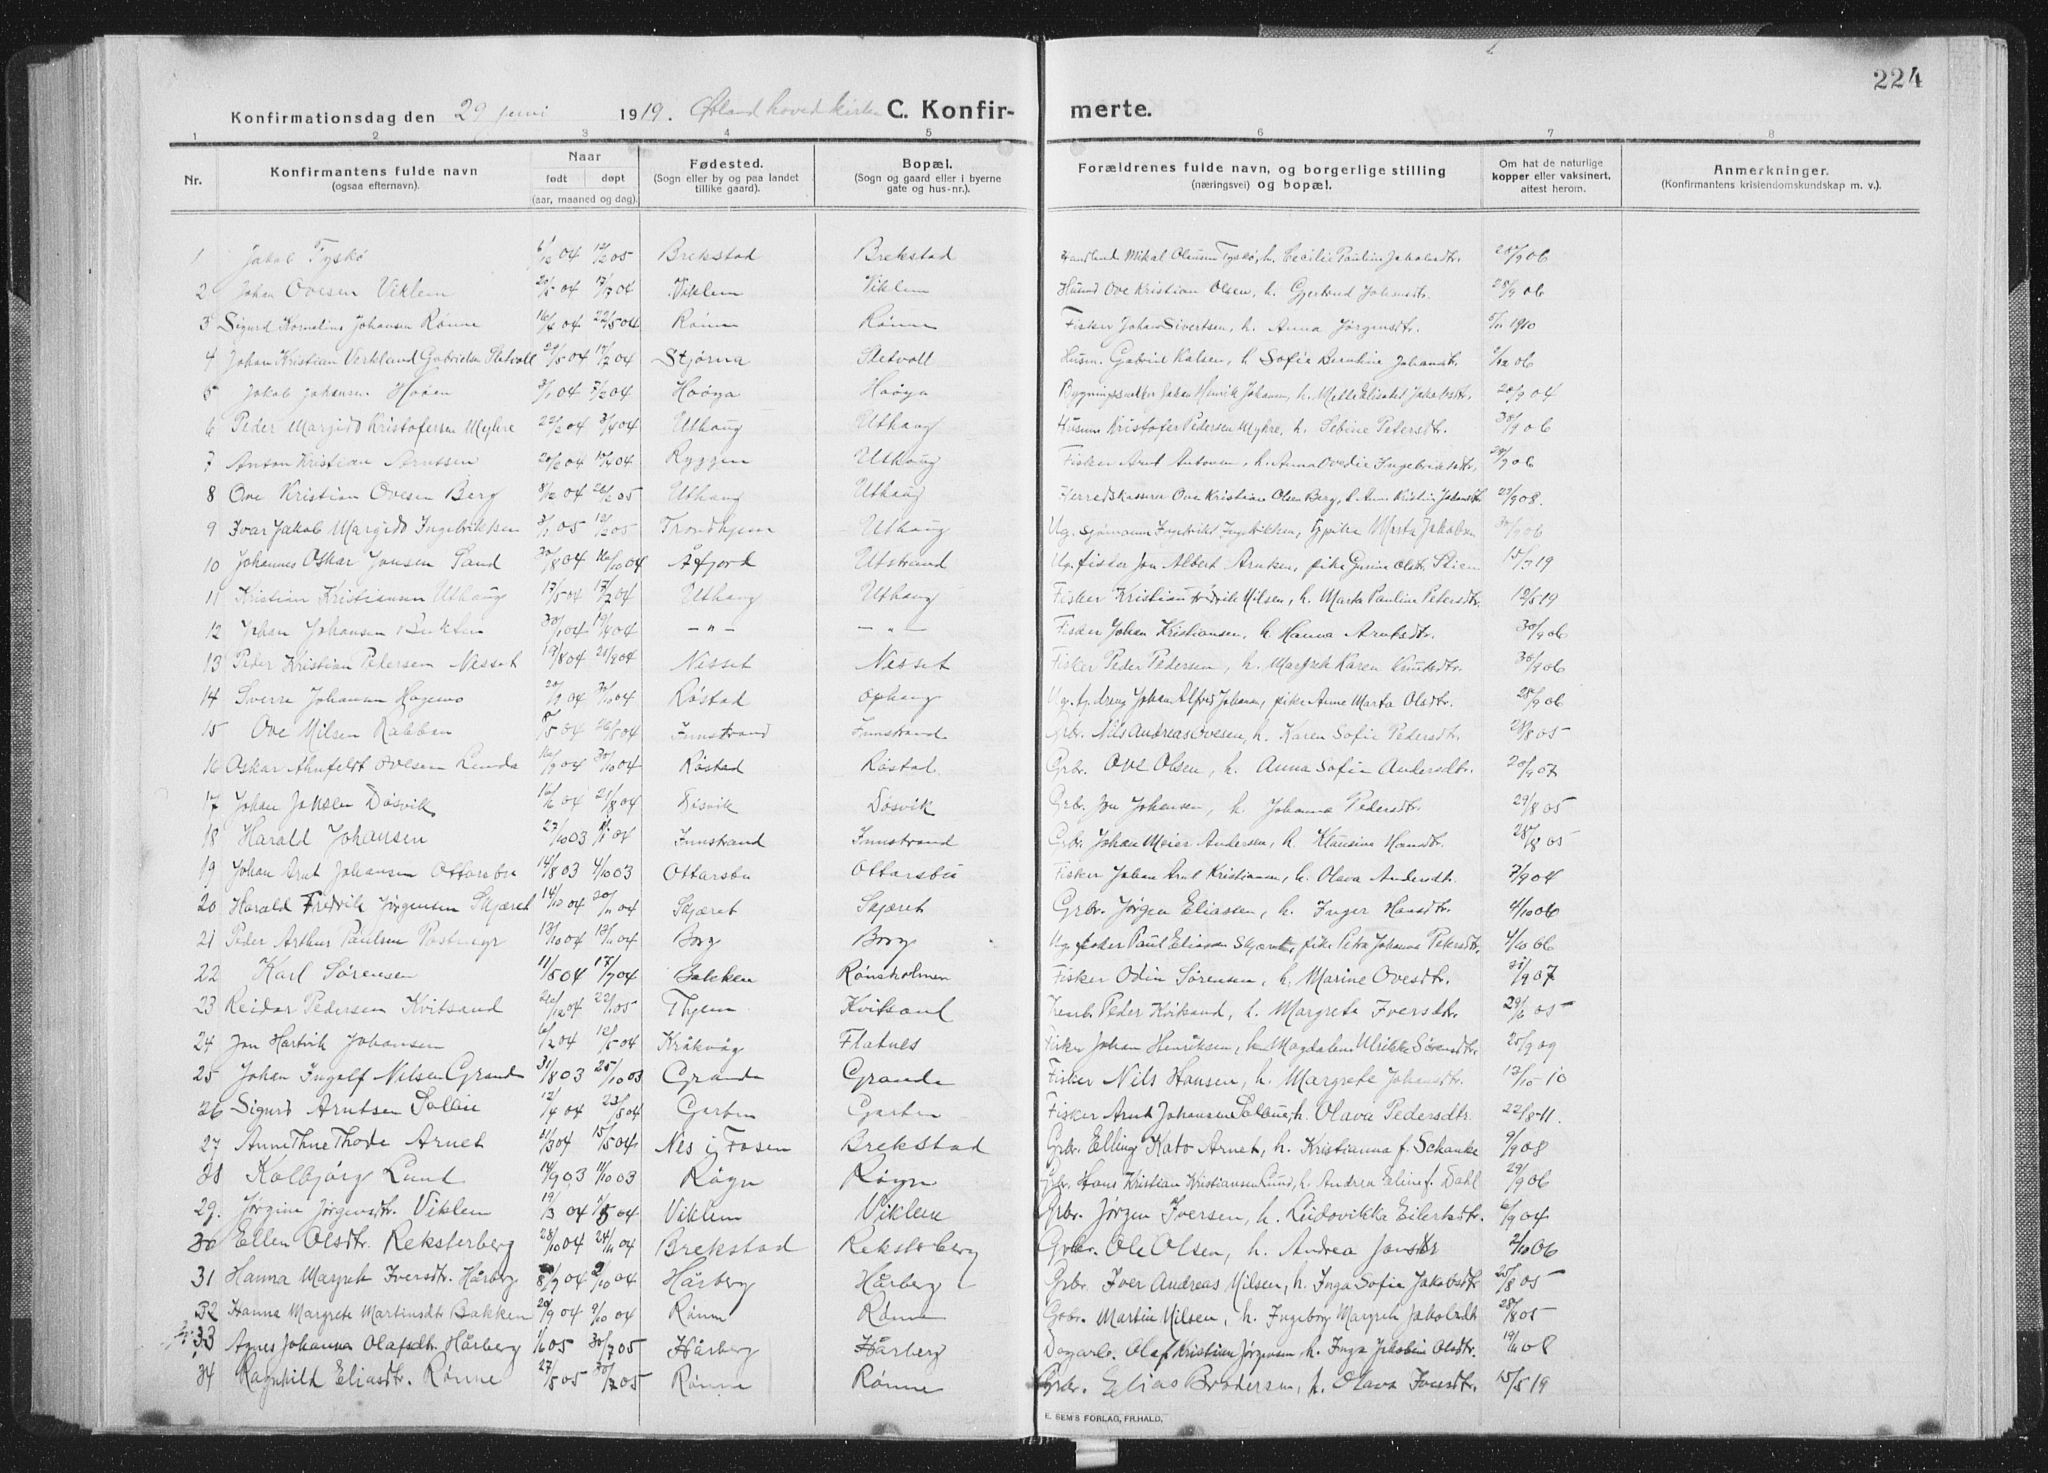 224
Konfirmationsdag den 29 juni 1919. Ørland hovedkirke C. Konfirmerte.
1 2 3 4 5 6 7 8
Nr. Konfirmantens fulde navn (ogsaa efternavn). Naar født døpt (aar, maaned og dag). Fødested. (Sogn eller by og paa landet tillike gaard). Bopæl. (Sogn og gaard eller i byerne gate og hus-nr.). Forældrenes fulde navn, og borgerlige stilling (næringsvei) og bopæl. Om hat de naturlige kopper eller vaksinert, attest herom. Anmerkninger. (Konfirmantens kristendomskundskap m. v.).
1 Jakob Tyskø 6/12 04 12/2 05 Brekstad Brekstad Mikal Olausen Tyskø, h. Cecilie Paulin Jakobsdtr. 28/9 06
2 Johan Ovesen Viklem 20/5 04 17/7 04 Viklem Viklem Husmd Ove Kristian Olsen, h. Gjertrud Johansdtr. 28/9 06
3 Sigurd Kornelius Johansen Rønne 16/4 04 22/5 04 Rønne Rønne Fisker Johan Sivertsen, h. Anna Jørgensdtr. 5/11 1910
4 Johan Kristian Verkland Gabrielsen Sletvoll 29/5 04 17/7 04 Stjørna Sletvoll Husm. Gabriel Kalsen, h. Sofie Bernhine Johansdtr. 2/12 06
5 Jakob Johansen Hoøen 3/1 04 7/2 04 Hoøya Hoøya Bygningssnekker Johan Henrik Johansen, h. Mette Elisabet Jakobsdtr. 20/9 04
6 Peder Margido Kristofersen Myhre 22/2 04 3/4 04 Uthaug Uthaug Husmn Kristofer Pedersen Myhre, h. Sebine Petersdtr. 30/9 06
7 Anton Kristian Arntsen 20/2 04 10/4 04 Ryggen Uthaug Fisker Arnt Antonsen, h. Anna Ovedie Ingebriktsdtr. 29/9 06
8 Ove Kristian Ovesen Berg 8/12 04 26/2 05 Uthaug Uthaug Herredskasserer Ove Kristian Olsen Berg, h. Anne Kristine Johansdtr. 23/9 08.
9 Ivar Jakob Margido Ingebriktsen 3/1 05 12/2 05 Trondhjem Uthaug Ug. Sjømann Ingebrikt Ingebriktsen, pike Marta Jakobsen 30/9 06
10 Johannes Oskar Jonsen Sand 20/8 04 16/10 04 Åfjord Utstrand Ug. fisker Jon Albert Arntsen, pike Gurine Olsdtr. Stien 15/7 19
11 Kristian Kristiansen Uthaug 17/5 04 17/7 04 Uthaug Uthaug Fisker Kristian Fredrik Nilsen, h. Marta Pauline Petersdtr. 12/5 19
12 Johan Johansen Bukten 30/1 04 10/4 04 — „ — — „ — Fisker Johan Kristiansen, h. Hanna Arntsdtr. 30/9 06
13 Peder Kristian Petersen Nesset 19/8 04 25/9 04 Nesset Nesset Fisker Peder Pedersen, h. Margrete Karen Knutsdtr. 30/9 06
14 Sverre Johansen Hagemo 20/9 04 30/10 04 Røstad Ophaug Ug. tj. dreng Johan Alfred Johansen, pike Anne Marta Olsdtr. 28/9 06
15 Ove Nilsen Rabben 8/5 04 26/6 04 Innstrand Innstrand Grbr. Nils Andreas Ovesen, h. Karen Sofie Pedersdtr. 28/8 05
16 Oskar Ahnfeldt Ovesen Lunda 16/9 04 30/10 04 Røstad Røstad. Grbr. Ove Olsen, h. Anna Sofie Andersdtr. 20/9 07
17 Johan Jonsen Døsvik 16/6 04 21/8 04 Døsvik Døsvik Grbr. Jon Johansen, h. Johanna Pedersdtr. 29/8 05
18 Harald Johansen 27/10 03 1/1 04 Innstrand Innstrand Grbr. Johan Meier Andersen, h. Klausine Hansdtr. 28/8 05
19 Johan Arnt Johansen Ottarsbu 14/8 03 4/10 03 Ottarsbu Ottarsbu Fisker Johan Arnt Kristiansen, h. Olava Andersdtr. 7/9 04
20 Harald Fredrik Jørgensen Skjæret 14/10 04 20/11 04 Skjæret Skjæret Grbr. Jørgen Eliassen, h. Inger Hansdtr. 4/10 06
21 Peder Arthur Paulsen Postmyr 13/10 04 13/11 04 Borg Borg Ug. fisker Paul Eliassen Skjæret, pike Petra Johanna Petersdtr. 4/10 06
22 Karl Sørensen 11/5 04 17/7 04 Bakken Rønsholmen Fisker Odin Sørensen, h. Marine Ovesdtr. 21/9 07
23 Reidar Pedersen Kvitsand 26/12 04 22/1 05 Thjem Kvitsand Peder Kvitsand, h. Margrete Iversdtr. 29/6 05
24 Jon Hartvik Johansen 6/2 04 12/5 04 Kråkvåg Flatnes Fisker Johan Henriksen, h. Magdalena Ulrikke Sørensdtr. 25/9 09
25 Johan Ingolf Nilsen Grande 31/8 03 25/10 03 Grande Grande Fisker Nils Hansen, h. Margrete Johansdtr. 12/10-10
26 Sigurd Arntsen Solbue 12/4 04 23/8 04 Garten Garten Fisker Arnt Johansen Solbue, h. Olava Pedersdtr. 22/8-11.
27 Anne Thne Thode Arnet 31/3 04 15/5 04 Nes i Fosen Brekstad Grbr. Elling Kato Arnet, h. Kristianna f. Schanke 9/9 08
28 Kolbjørg Lund 14/9 03 11/10 03 Røgn Røgn Grbr. Hans Kristian Kristiansen Lund, h. Andrea Eline f. Dahl 29/9 06
29. Jørgine Jørgensdtr. Viklem 19/3 04 1/5 04 Viklem Viklem Grbr. Jørgen Iversen, h. Ludovikka Eilertsdtr. 6/9 04
30 Ellen Olsdtr. Reksterberg 28/10 04 24/11 04 Brekstad Reksterberg Grbr. Ole Olsen, h. Andrea Jonsdtr 2/10 06
31 Hanna Margrete Iversdtr. Hårberg 8/9 04 9/10 04 Hårberg Hårberg Grbr. Iver Andreas Nilsen, h. Inga Sofie Jakobsdtr 25/8 05
32 Hanna Margrete Martinsdtr Bakken 20/9 04 9/10 04 Rønne Rønne Grbr. Martin Nilsen, h. Ingeborg Margrete Jakobsdtr 28/8 05
33 Agnes Johanna Olafsdtr. Hårberg 1/6 05 30/7 05 Hårberg Hårberg Dagarb. Olaf Kristian Jørgensen h. Inga Jakobine Olsdtr. 19/10 08
34 Ragnhild Eliasdtr. Rønne 27/5 05 30/7 05 Rønne Rønne Grbr. Elias Brodersen, h. Olava Iversdtr. 15/5 19
E. SEM'S FORLAG, FR.HALD.